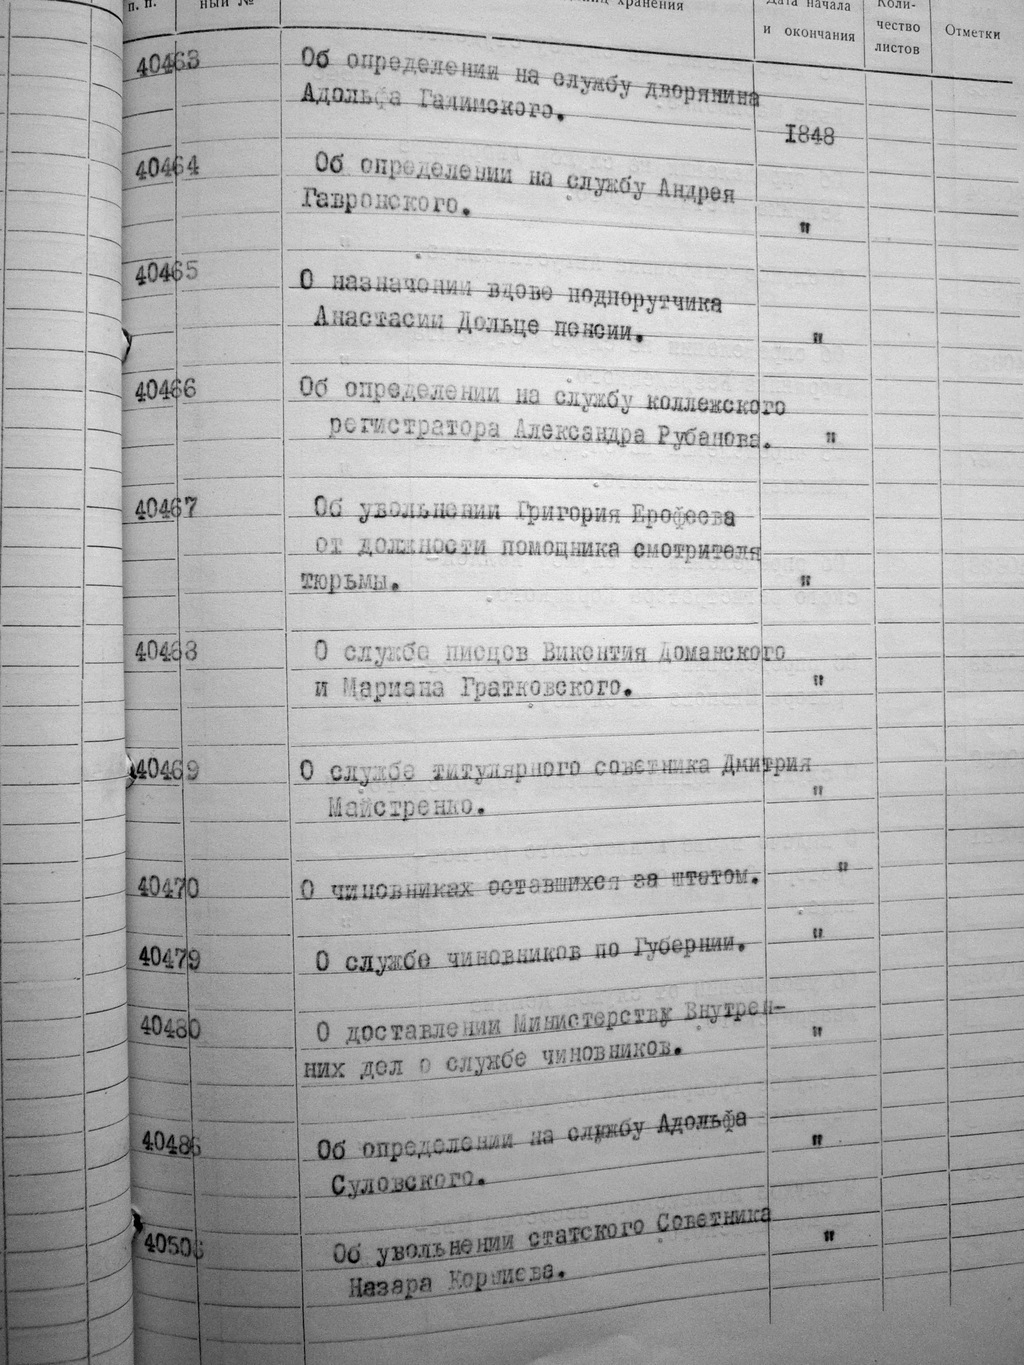 п. п.
ный №
хранения
Дата начала
и окончания
Коли-
чество
листов
Отметки
40463 Об определении на службу дворянина
Адольфа Галимского.
1848
40464 Об определении на службу Андрея
Гавронского. "
40465 О назначении вдове подпорутчика
Анастасии Дольце пенсии. "
40466 Об определении на службу коллежского
регистратора Александра Рубанова. "
40467 Об увольнении Григория Ерофеева
от должности помощника смотрителя
тюрьмы. "
40468 О службе писцов Викентия Доманского
и Мариана Гратковского. "
40469 О службе титулярного советника Дмитрия
Майстренко. "
40470 О чиновниках оставшихся за штатом. "
40479 О службе чиновников по Губернии. "
40480 О доставлении Министерству Внутрен-
них дел о службе чиновников. "
40486 Об определении на службу Адольфа
Суловского. "
Об увольнении статского Советника
Назара "